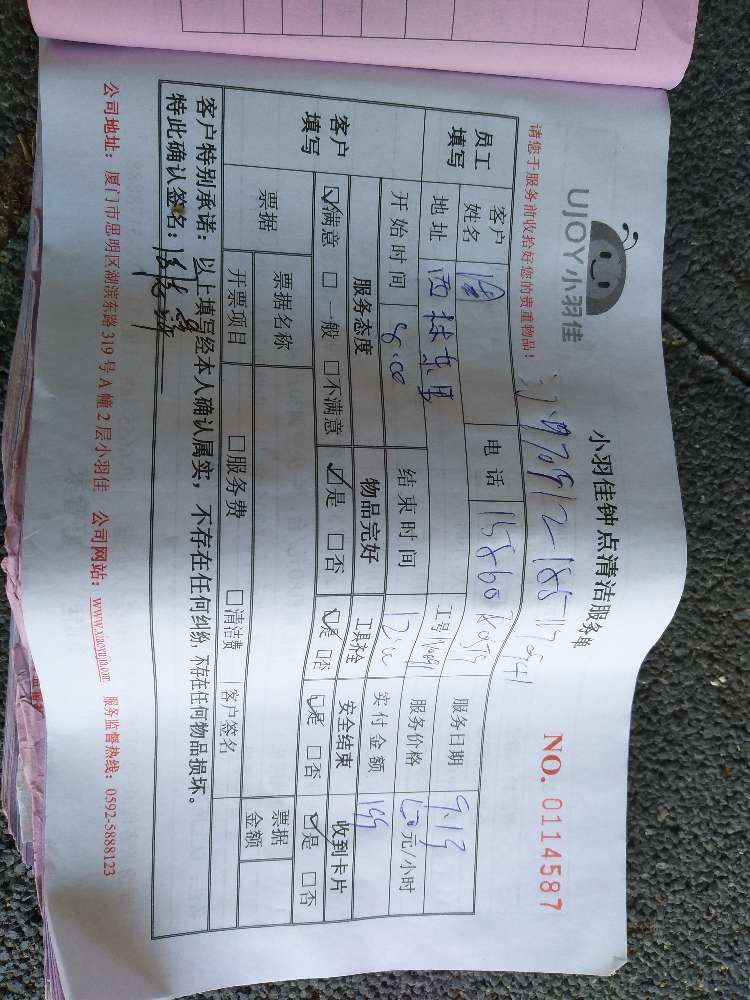 UJOY小羽佳
小羽佳钟点清洁服务单
NO. 0114587
请您于服务前收拾好您的贵重物品！
员工填写
客户姓名
电话 15860
工号
服务日期 9.19
地址 西林东里
服务价格 元/小时
开始时间 8:00
结束时间 12:00
实付金额
客户填写
服务态度 物品完好 工具齐全 安全结束 收到卡片
☑满意 □一般 □不满意 ☑是 □否 ☑是 □否 ☑是 □否 ☑是 □否
票据 票据名称 票据金额
开票项目 □服务费 □清洁费 客户签名
客户特别承诺：以上填写经本人确认属实，不存在任何纠纷，不存在任何物品损坏。
特此确认签名：
公司地址：厦门市思明区湖滨东路319号A幢2层小羽佳 公司网站：www.xiaoyujia.com 服务监督热线：0592-5888123